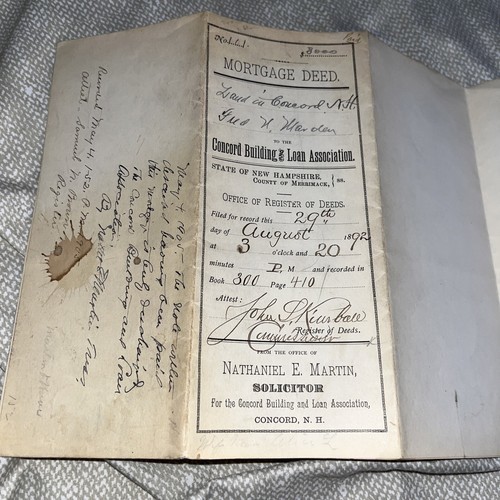 $3000
MORTGAGE DEED.
Land in Concord N.H.
Fred N. Marden
TO THE
Concord Building and Loan Association.
STATE OF NEW HAMPSHIRE, } ss.
COUNTY OF MERRIMACK,
OFFICE OF REGISTER OF DEEDS.
Filed for record this 29th
day of August 1892
at 3 o'clock and 20
minutes P. M and recorded in
Book 300 Page 410
Attest:
John
Register of Deeds.
FROM THE OFFICE OF
NATHANIEL E. MARTIN,
SOLICITOR
For the Concord Building and Loan Association,
CONCORD, N. H.
May 4, 1905. The note within
described having been paid
this mortgage is hereby discharged
The Concord Building and Loan
Association
By
Received May 4, 1905
Attest, Samuel N. Brown
Register